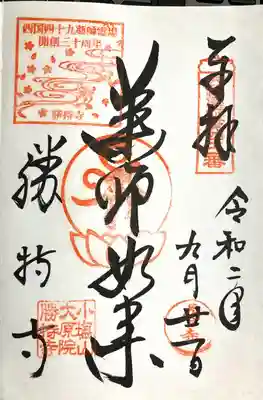 奉拝
令和二年
九月廿一日
薬師如来
西国四十九薬師霊場
開創三十周年
勝持寺
勝持寺
小塩山
大原院
勝持寺